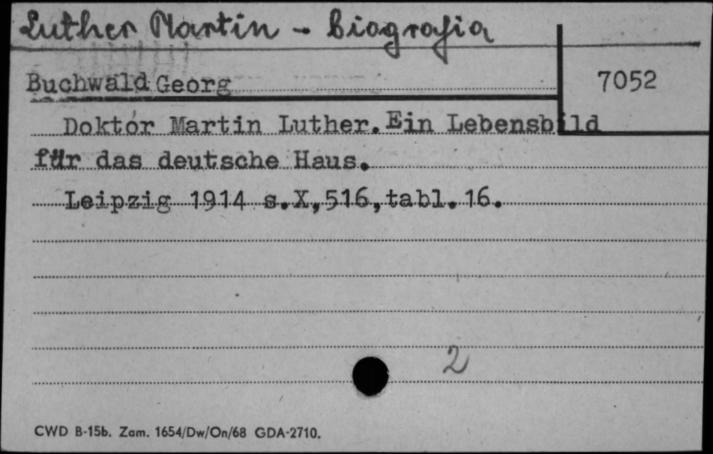 Luther Martin - Biografia
Buchwald Georg
7052
Doktór Martin Luther. Ein Lebensbild
für das deutsche Haus.
Leipzig 1914 s.X,516,tabl.16.
2
CWD B-15b. Zam. 1654/Dw/On/68 GDA-2710.